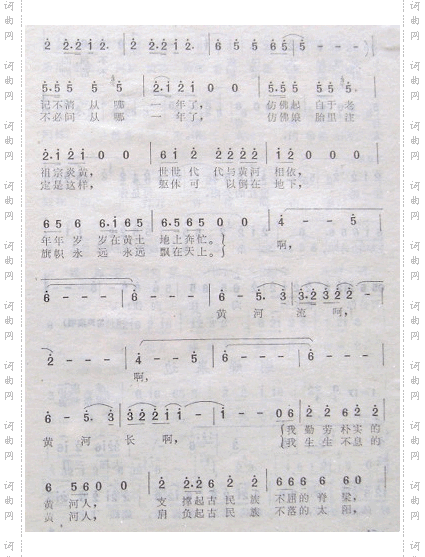 2 2·2 i 2· | 2 2·2 i 2· | 6 5 5 6 5 | 5 - - - )
5·5 5 5 5 | 2·1 2 1 0 | 5·5 5 5 5 5
记不清 从 哪 一 年了, 仿佛起 自于 老
不必问 从 哪 一 年了, 仿佛娘 胎里 注
2·1 2 1 0 0 | 6 1 2 2 2 2 2 | 2 2 0 0
祖宗炎黄, 世世 代 代与黄河 相依,
定是这样, 躯体可 以倒在 地下,
6 5 6 6·1 6 5 | 6·5 6 5 0 0 | 4 - - 5
年年 岁 岁在黄土 地上奔忙。 啊,
旗帜 永 远永远 飘在天上。
6 - - - | 6 - - - | 6 - 5· 3 | 3·2 3 2 2 -
黄 河 流 呵,
2 - - - | 4 - - 5 | 6 - - - | 6 - - -
啊,
6 - 5· 3 | 3 2 2 1 1 - | 1 - - 0 6 | 2 2 6 2 2
黄 河 长 啊, 我 勤 劳 朴实 的
我 生 生 不息 的
6 5 6 0 0 | 2 2·2 6 2 2 | 6 6 6 6 6 0
黄 河人, 支 撑起古 民 族 不屈的 脊 梁,
黄 河人, 肩 负起古 民 族 不落的 太 阳,
词曲网
词曲网
词曲网
词曲网
词曲网
词曲网
词曲网
词曲网
词曲网
词曲网
词曲网
词曲网
词曲网
词曲网